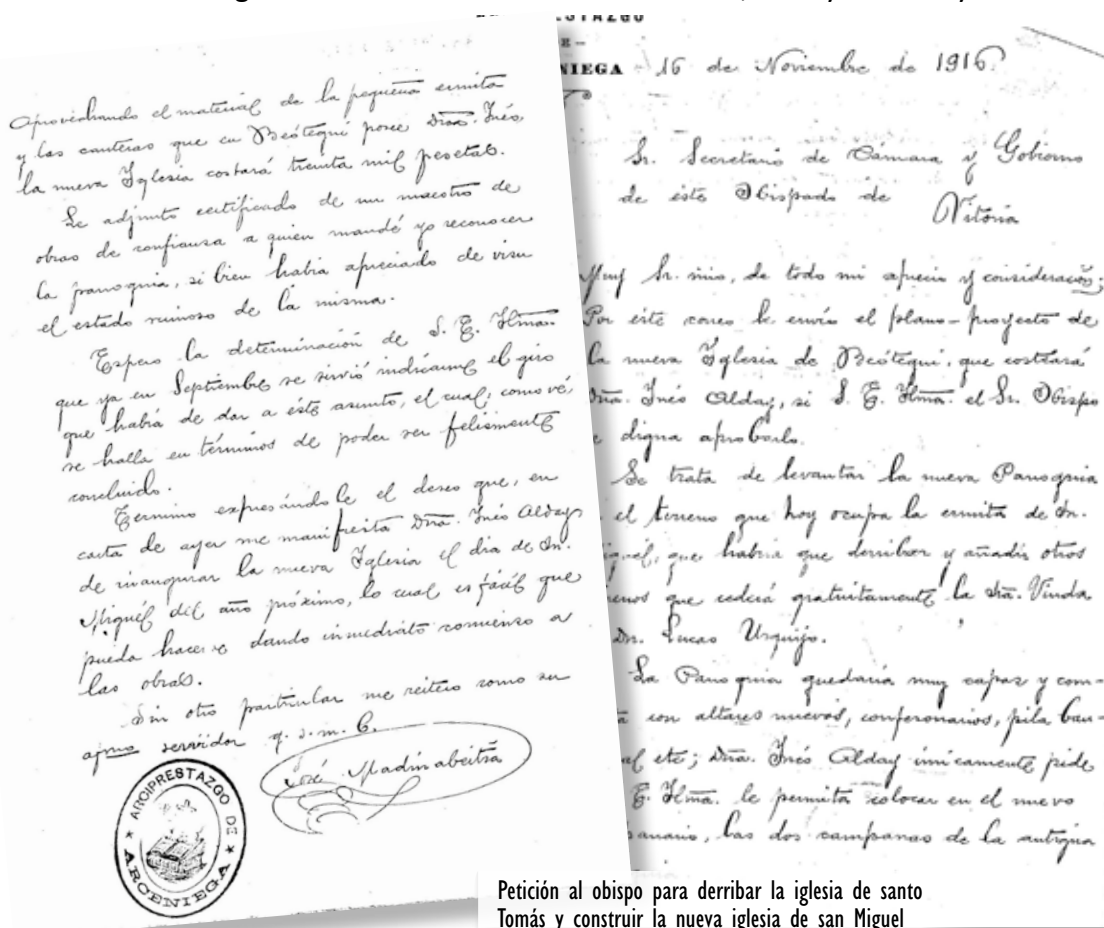 Aprovechando el material de la pequeña ermita
y las canteras que en Beótegui posee Dña. Inés,
la nueva Iglesia costará treinta mil pesetas.
Le adjunto certificado de un maestro de
obras de confianza a quien mandé yo reconocer
la parroquia, si bien había apreciado de visu
el estado ruinoso de la misma.
Espero la determinación de S. E. Ilma.
que ya en Septiembre se sirvió indicarme el giro
que había de dar a éste asunto, el cual, como vé,
se halla en términos de poder ser felismente
concluido.
Termino expresándole el deseo que, en
carta de ayer me manifiesta Dña. Inés Alday
de inaugurar la nueva Iglesia el dia de Sn.
Miguél del año próximo, lo cual es fácil que
pueda hacerse dando inmediato comienso a
las obras.
Sin otro particular me reitero como su
afmo servidor q. s. m. b.
José Madinabeitia
ARCIPRESTAZGO DE
ARCENIEGA
NIEGA 16 de Noviembre de 1916.
Sr. Secretario de Cámara y Gobierno
de este Obispado de
Vitoria
Muy Sr. mio, de todo mi aprecio y consideración;
Por éste correo le envío el plano-proyecto de
la nueva Iglesia de Beótegui, que costeará
Dña. Inés Alday, si S. E. Ilma. el Sr. Obispo
se digna aprobarlo.
Se trata de levantar la nueva Parroquia
el terreno que hoy ocupa la ermita de Sn.
iguél, que habria que derribar y añadir otros
renos que cederá gratuitamente la Sra. Viuda
Dn. Lucas Urquijo.
La Parroquia quedaría muy capaz y com-
ta con altares nuevos, confesonarios, pila bau-
al etc; Dña. Inés Alday únicamente pide
E. Ilma. le permita colocar en el nuevo
panario, las dos campanas de la antigua
Petición al obispo para derribar la iglesia de santo
Tomás y construir la nueva iglesia de san Miguel